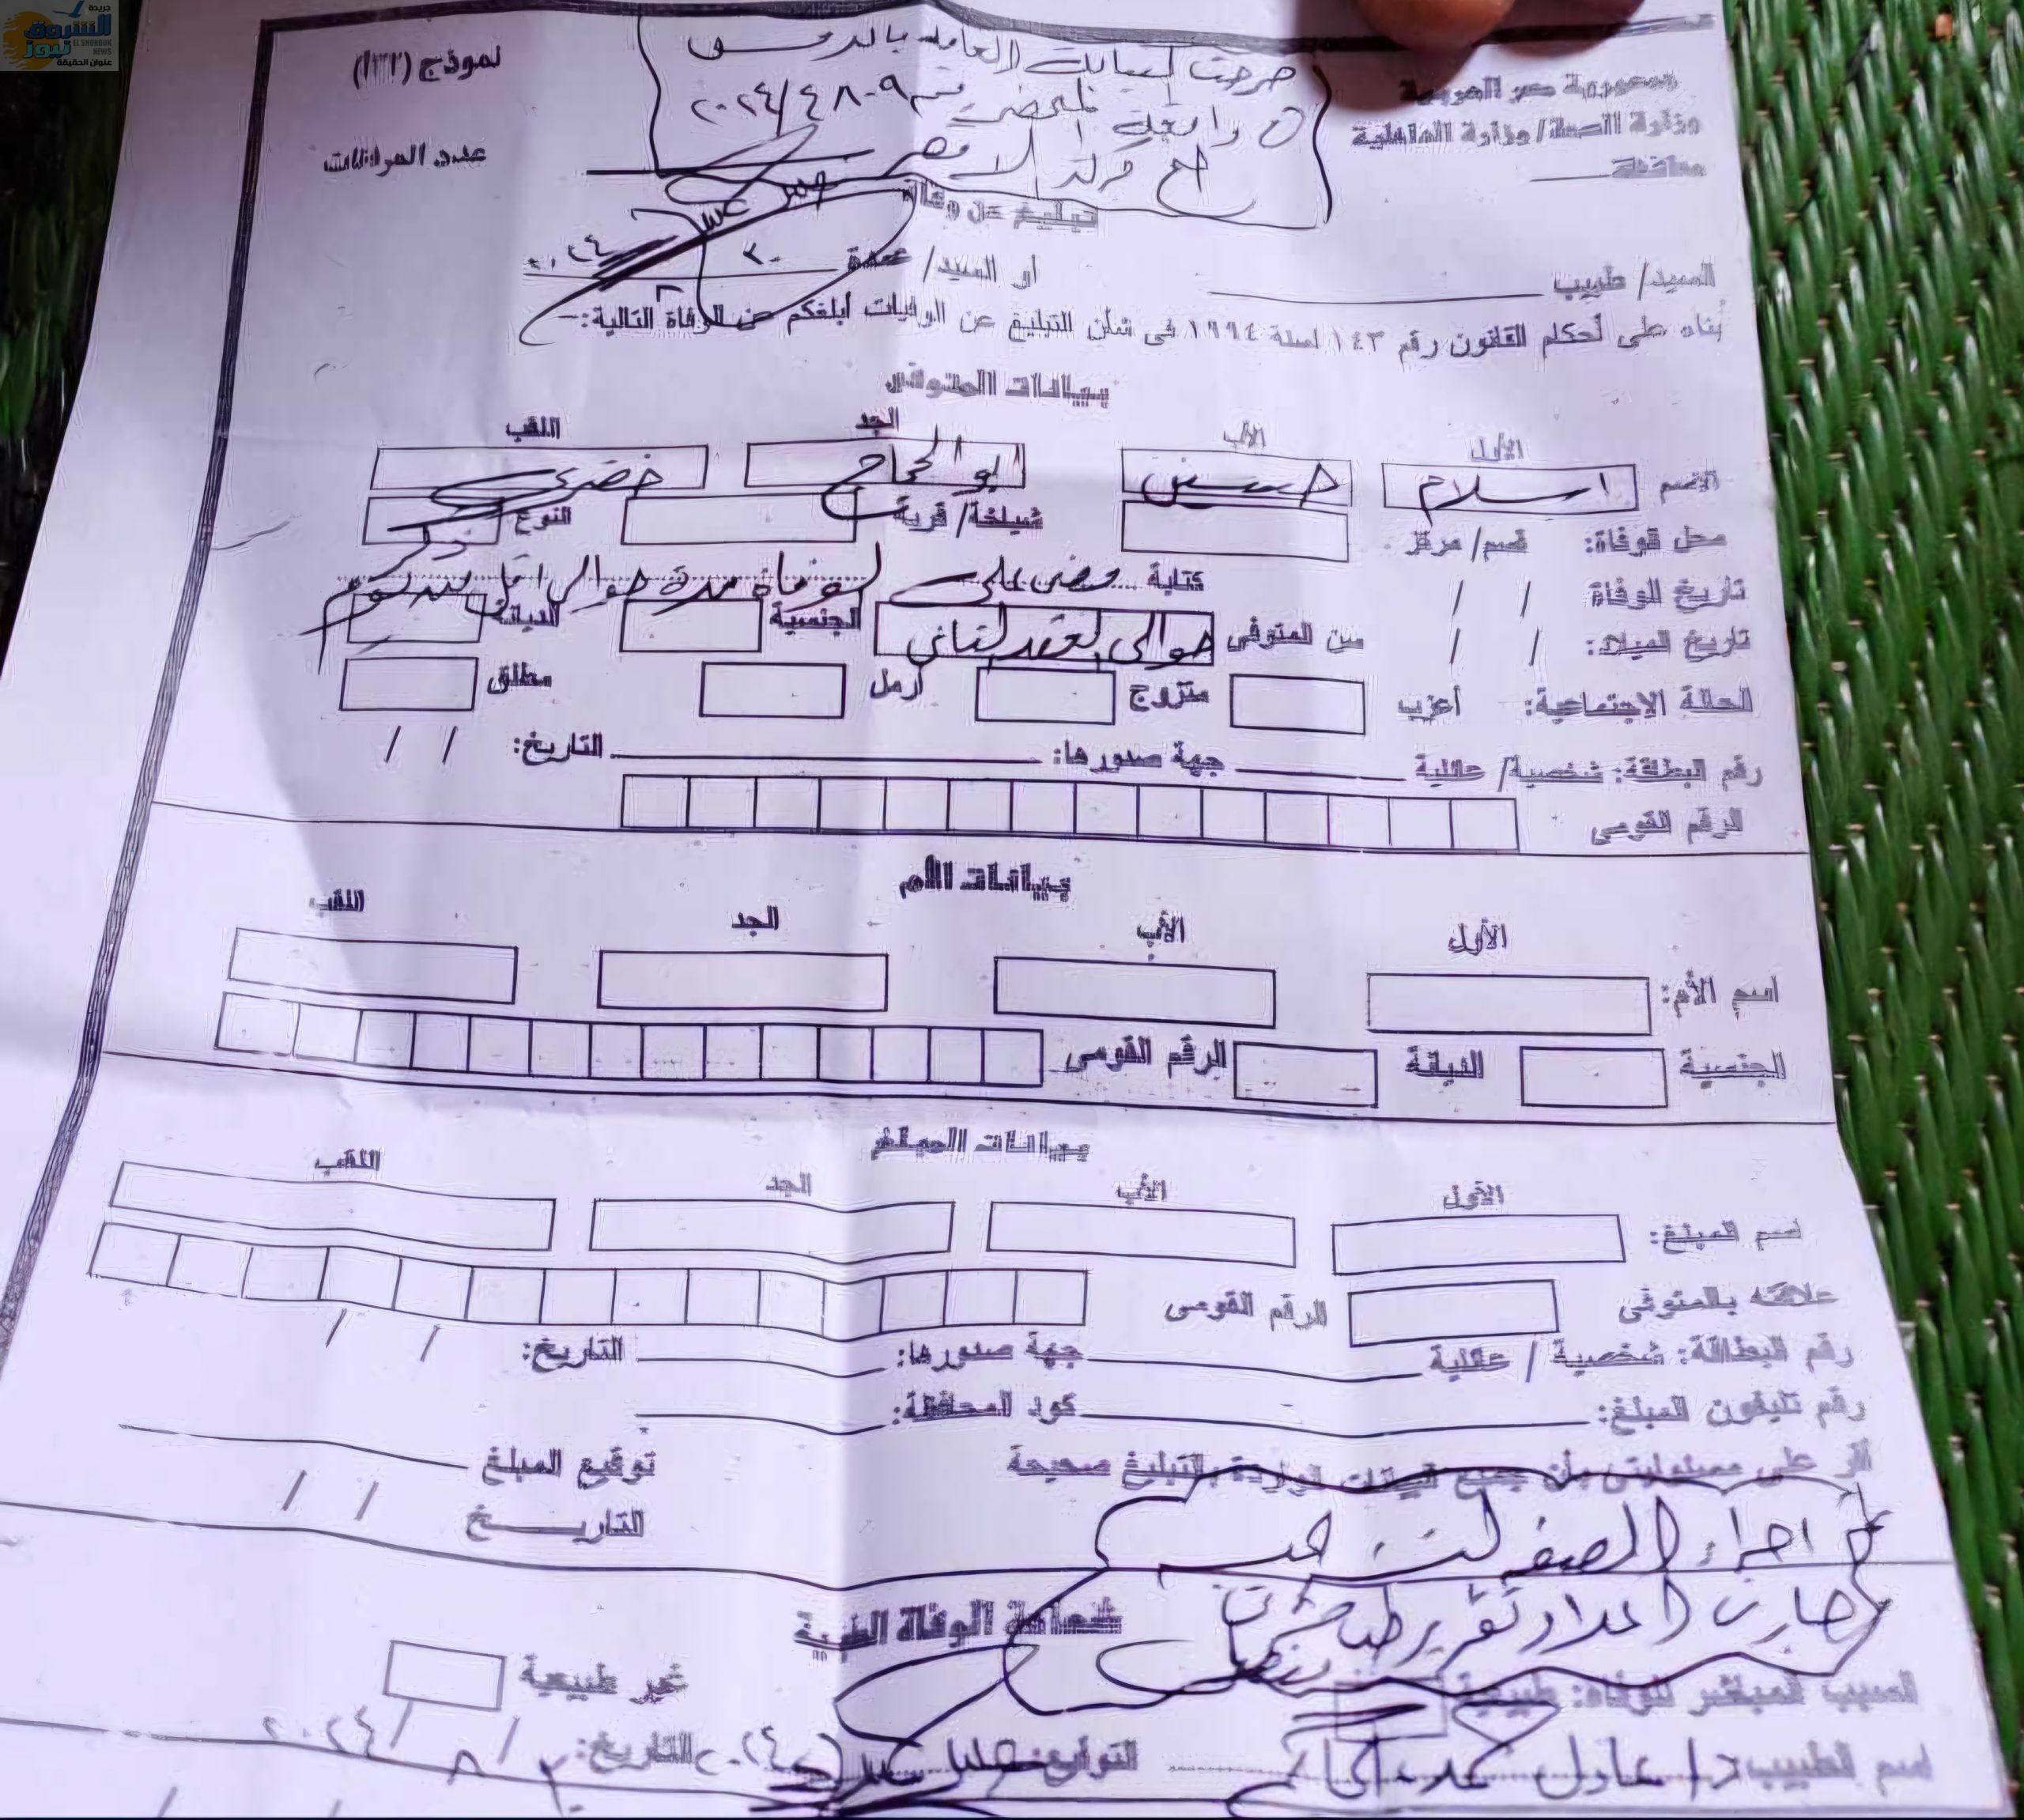 جريدة
الشروق
نيوز
EL SHOROUK
NEWS
عنوان الحقيقة
جمهورية مصر العربية
وزارة الصحة/ وزارة الداخلية
محافظة
نموذج (١٣٢)
عدد المرفقات
صرحت النيابة العامة بالدفن
٤٨٠٩ /٢٠٢٤
تبليغ عن وفاة
السيد/ طبيب
أو السيد/ عمدة
٢٠٢٤
بناء على أحكام القانون رقم ١٤٣ لسنة ١٩٩٤ فى شأن التبليغ عن الوفيات أبلغكم عن الوفاة التالية:-
بيانات المتوفى
الأول الأب الجد اللقب
الاسم اسلام حسين ابو الحجاج خضرى
محل الوفاة: قسم/ مركز شياخة/ قرية النوع ذكر
تاريخ الوفاة / / كتابة مضى على الوفاة مدة حوالى اقل من يوم
تاريخ الميلاد: / / سن المتوفى حوالى العقد الثانى الجنسية الديانة
الحالة الاجتماعية: أعزب متزوج أرمل مطلق
رقم البطاقة: شخصية/ عائلية جهة صدورها: التاريخ: / /
الرقم القومى
بيانات الأم
الأول الأب الجد اللقب
اسم الأم:
الجنسية الديانة الرقم القومى
بيانات المبلغ
الأول الأب الجد اللقب
اسم المبلغ:
علاقته بالمتوفى الرقم القومى
رقم البطاقة: شخصية / عائلية جهة صدورها: التاريخ: / /
رقم تليفون المبلغ: كود المحافظة:
أقر على مسئوليتى بأن جميع البيانات الواردة بالتبليغ صحيحة توقيع المبلغ
التاريـــخ / /
اجراء الصفه
اعداد تقرير طب شرعى
شهادة الوفاة الطبية
السبب المباشر للوفاة: طبيعية غير طبيعية
اسم الطبيب د/ عادل التوقيع: التاريخ: / ٨ / ٢٠٢٤